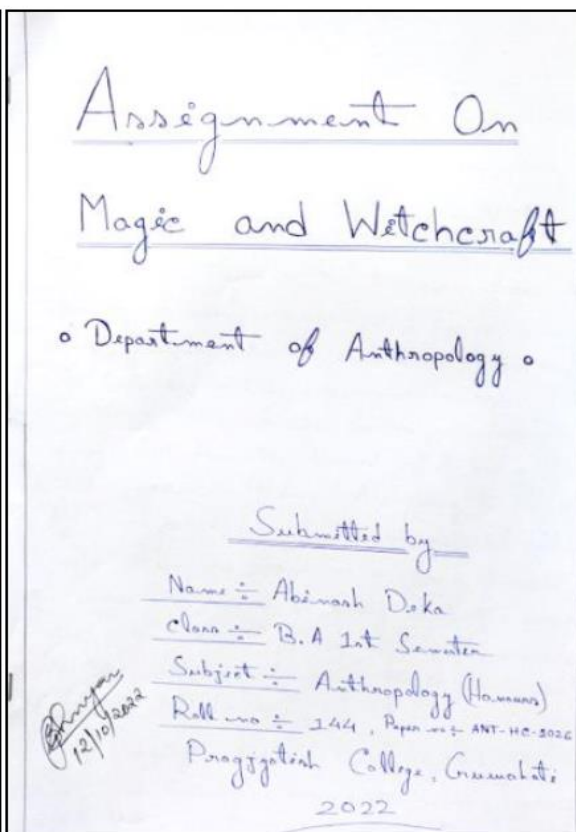 Assignment On
Magic and Witchcraft
Department of Anthropology
Submitted by
Name ÷ Abinash Deka
Class ÷ B.A 1st Semester
Subject ÷ Anthropology (Honours)
Roll no ÷ 144, Paper no ÷ ANT-HC-
Pragjyotish College, Guwahati
2022
12/10/2022